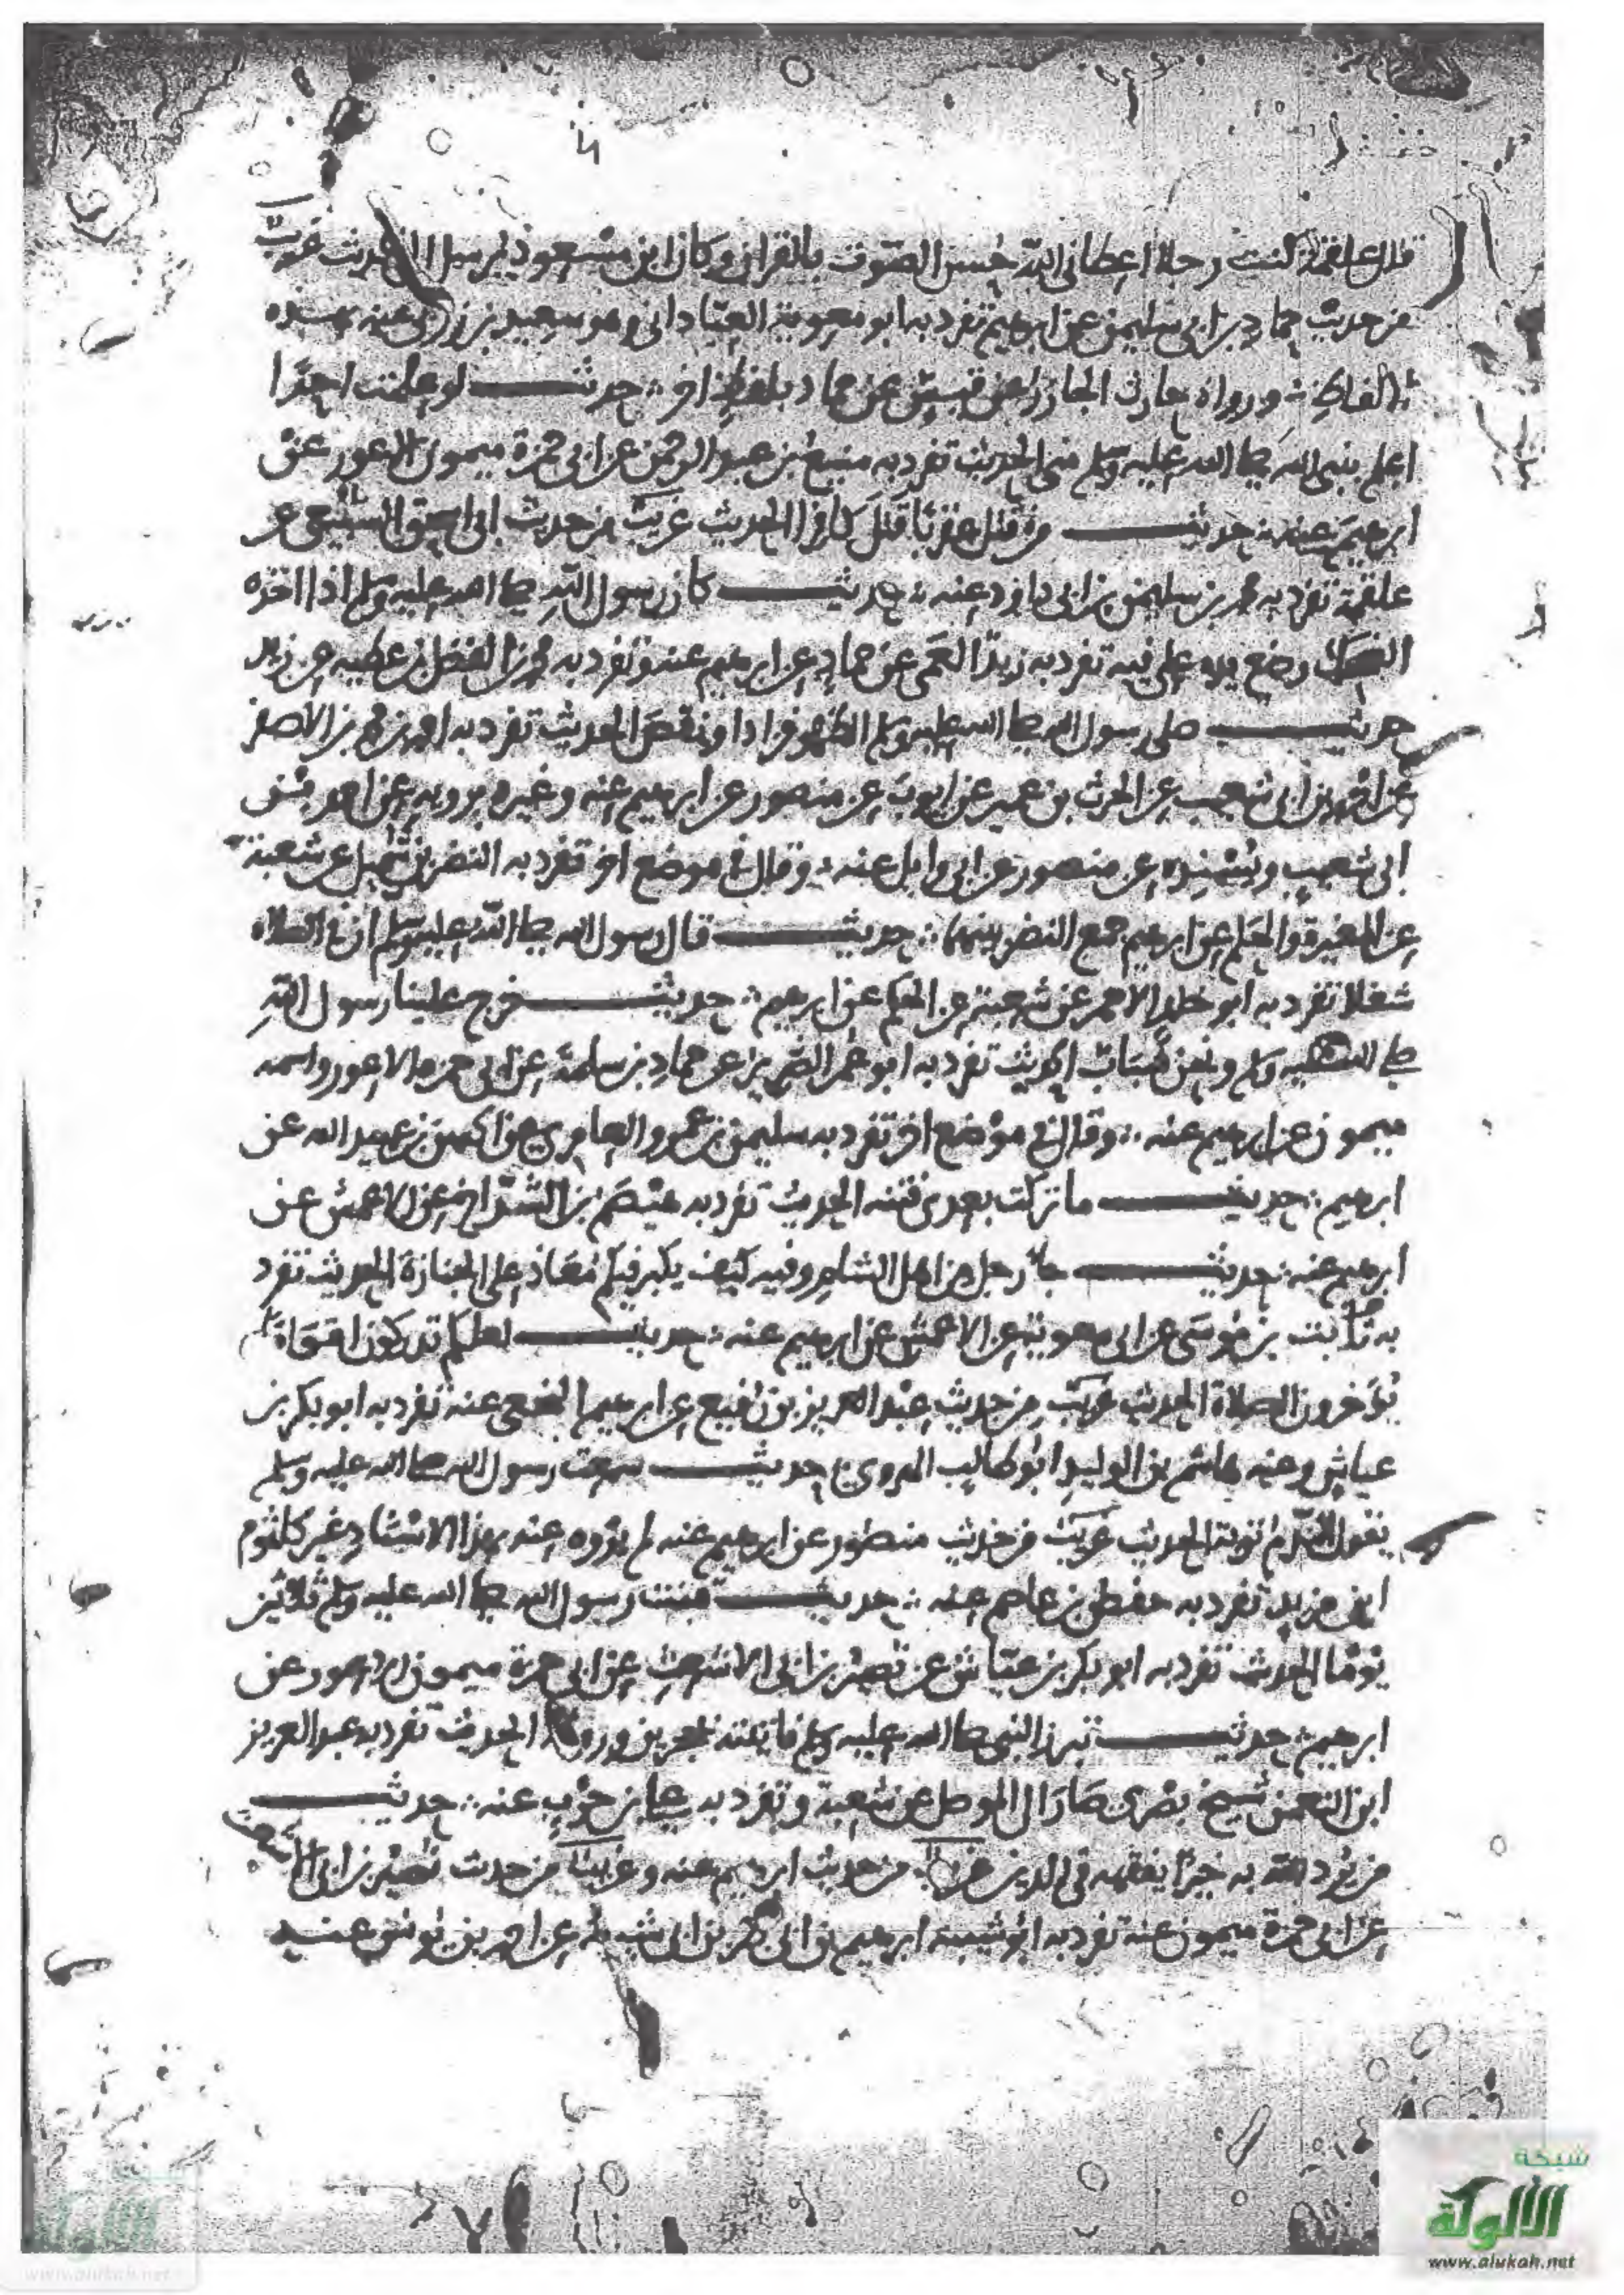 قال علقمة كنت رجلا اعطاني الله حسن الصوت بالقران وكان ابن مسعود يرسل الي الحديث غريب
من حديث حماد بن ابي سليمن عن ابرهيم تفرد به ابو معوية العباداني وهو سعيد بن زربي عنه بهذه
الالفاظ ورواه عن حماد بلفظ اخر حديث لو علمت احدا
اعلم بنبي الله صلى الله عليه وسلم مني الحديث تفرد به منيع بن عبد الرحمن عن ابي حمزة ميمون الاعور عن
ابرهيم عنه حديث من قتل عقربا الحديث غريب من حديث ابي اسحق السبيعي عن
علقمة تفرد به محمد بن سليمن بن ابي داود عنه حديث كان رسول الله صلى الله عليه وسلم اذا اخذه
الضحك وضع يده على فيه تفرد به زيد العمي عن حماد عن ابرهيم عنه وتفرد به محمد بن الفضل بن عطيه عن زيد
حديث صلى رسول الله صلى الله عليه وسلم الظهر فزاد او نقص الحديث تفرد به احمد بن محمد بن الاصفر
ابي شعيب عن الحرث بن عمير عن ايوب عن منصور عن ابرهيم عنه وغيره يرويه عن احمد بن
ابي شعيب ويسنده عن منصور عن ابي وايل عنه وقال في موضع اخر تفرد به النضر بن شميل عن شعبة
عن المغيرة والحكم عن ابرهيم جمع النضر بينهما حديث قال رسول الله صلى الله عليه وسلم ان في الصلاة
شغلا تفرد به ابو خلد الاحمر عن شعبة عن الحكم عن ابرهيم حديث خرج علينا رسول الله
صلى الله عليه وسلم ونحن شباب الحديث تفرد به ابو عمر الضرير عن حماد بن سلمة عن ابي حمزه الاعور واسمه
ميمون عن ابرهيم عنه وقال في موضع اخر تفرد به سليمن بن عمرو العامري عن الحسن بن عبيد الله عن
ابرهيم حديث ما تركت بعدي فتنه الحديث تفرد به عن الاعمش عن
ابرهيم عنه حديث جا رجل من اهل الشام وفيه كيف يكبر فيكم معاذ على الجنازة الحديث تفرد
به ثابت بن موسى عن ابي معوية عن الاعمش عن ابرهيم عنه حديث لعلكم تدركون اقواما
يؤخرون الصلاة الحديث غريب من حديث عبد العزيز بن رفيع عن ابرهيم النخعي عنه تفرد به ابو بكر بن
عياش وعنه هاشم بن الوليد ابو طالب الهروي حديث سمعت رسول الله صلى الله عليه وسلم
يقول الندم توبة الحديث غريب من حديث منصور عن ابرهيم عنه لم يروه عنه بهذا الاسناد غير كلثوم
ابن مزيد تفرد به حفص بن عاصم عنه حديث قنت رسول الله صلى الله عليه وسلم ثلاثين
يوما الحديث تفرد به ابو بكر بن عياش عن نصير بن ابي الاشعث عن ابي حمزة ميمون الاعور عن
ابرهيم حديث تبرز النبي صلى الله عليه وسلم فاتيته بحجرين وروثة الحديث تفرد به عبد العزيز
ابن النعمن شيخ بصري صار الى الموصل عن شعبة وتفرد به علي بن حرب عنه حديث
من يرد الله به خيرا يفقهه في الدين غريب من حديث ابرهيم عنه وغريب من حديث نصير بن ابي الاشعث
عن ابي حمزة ميمون عنه تفرد به ابو شيبة ابرهيم بن ابي بكر بن ابي شيبة عن احمد بن يونس عنه
شبكة
الألوكة
www.alukah.net